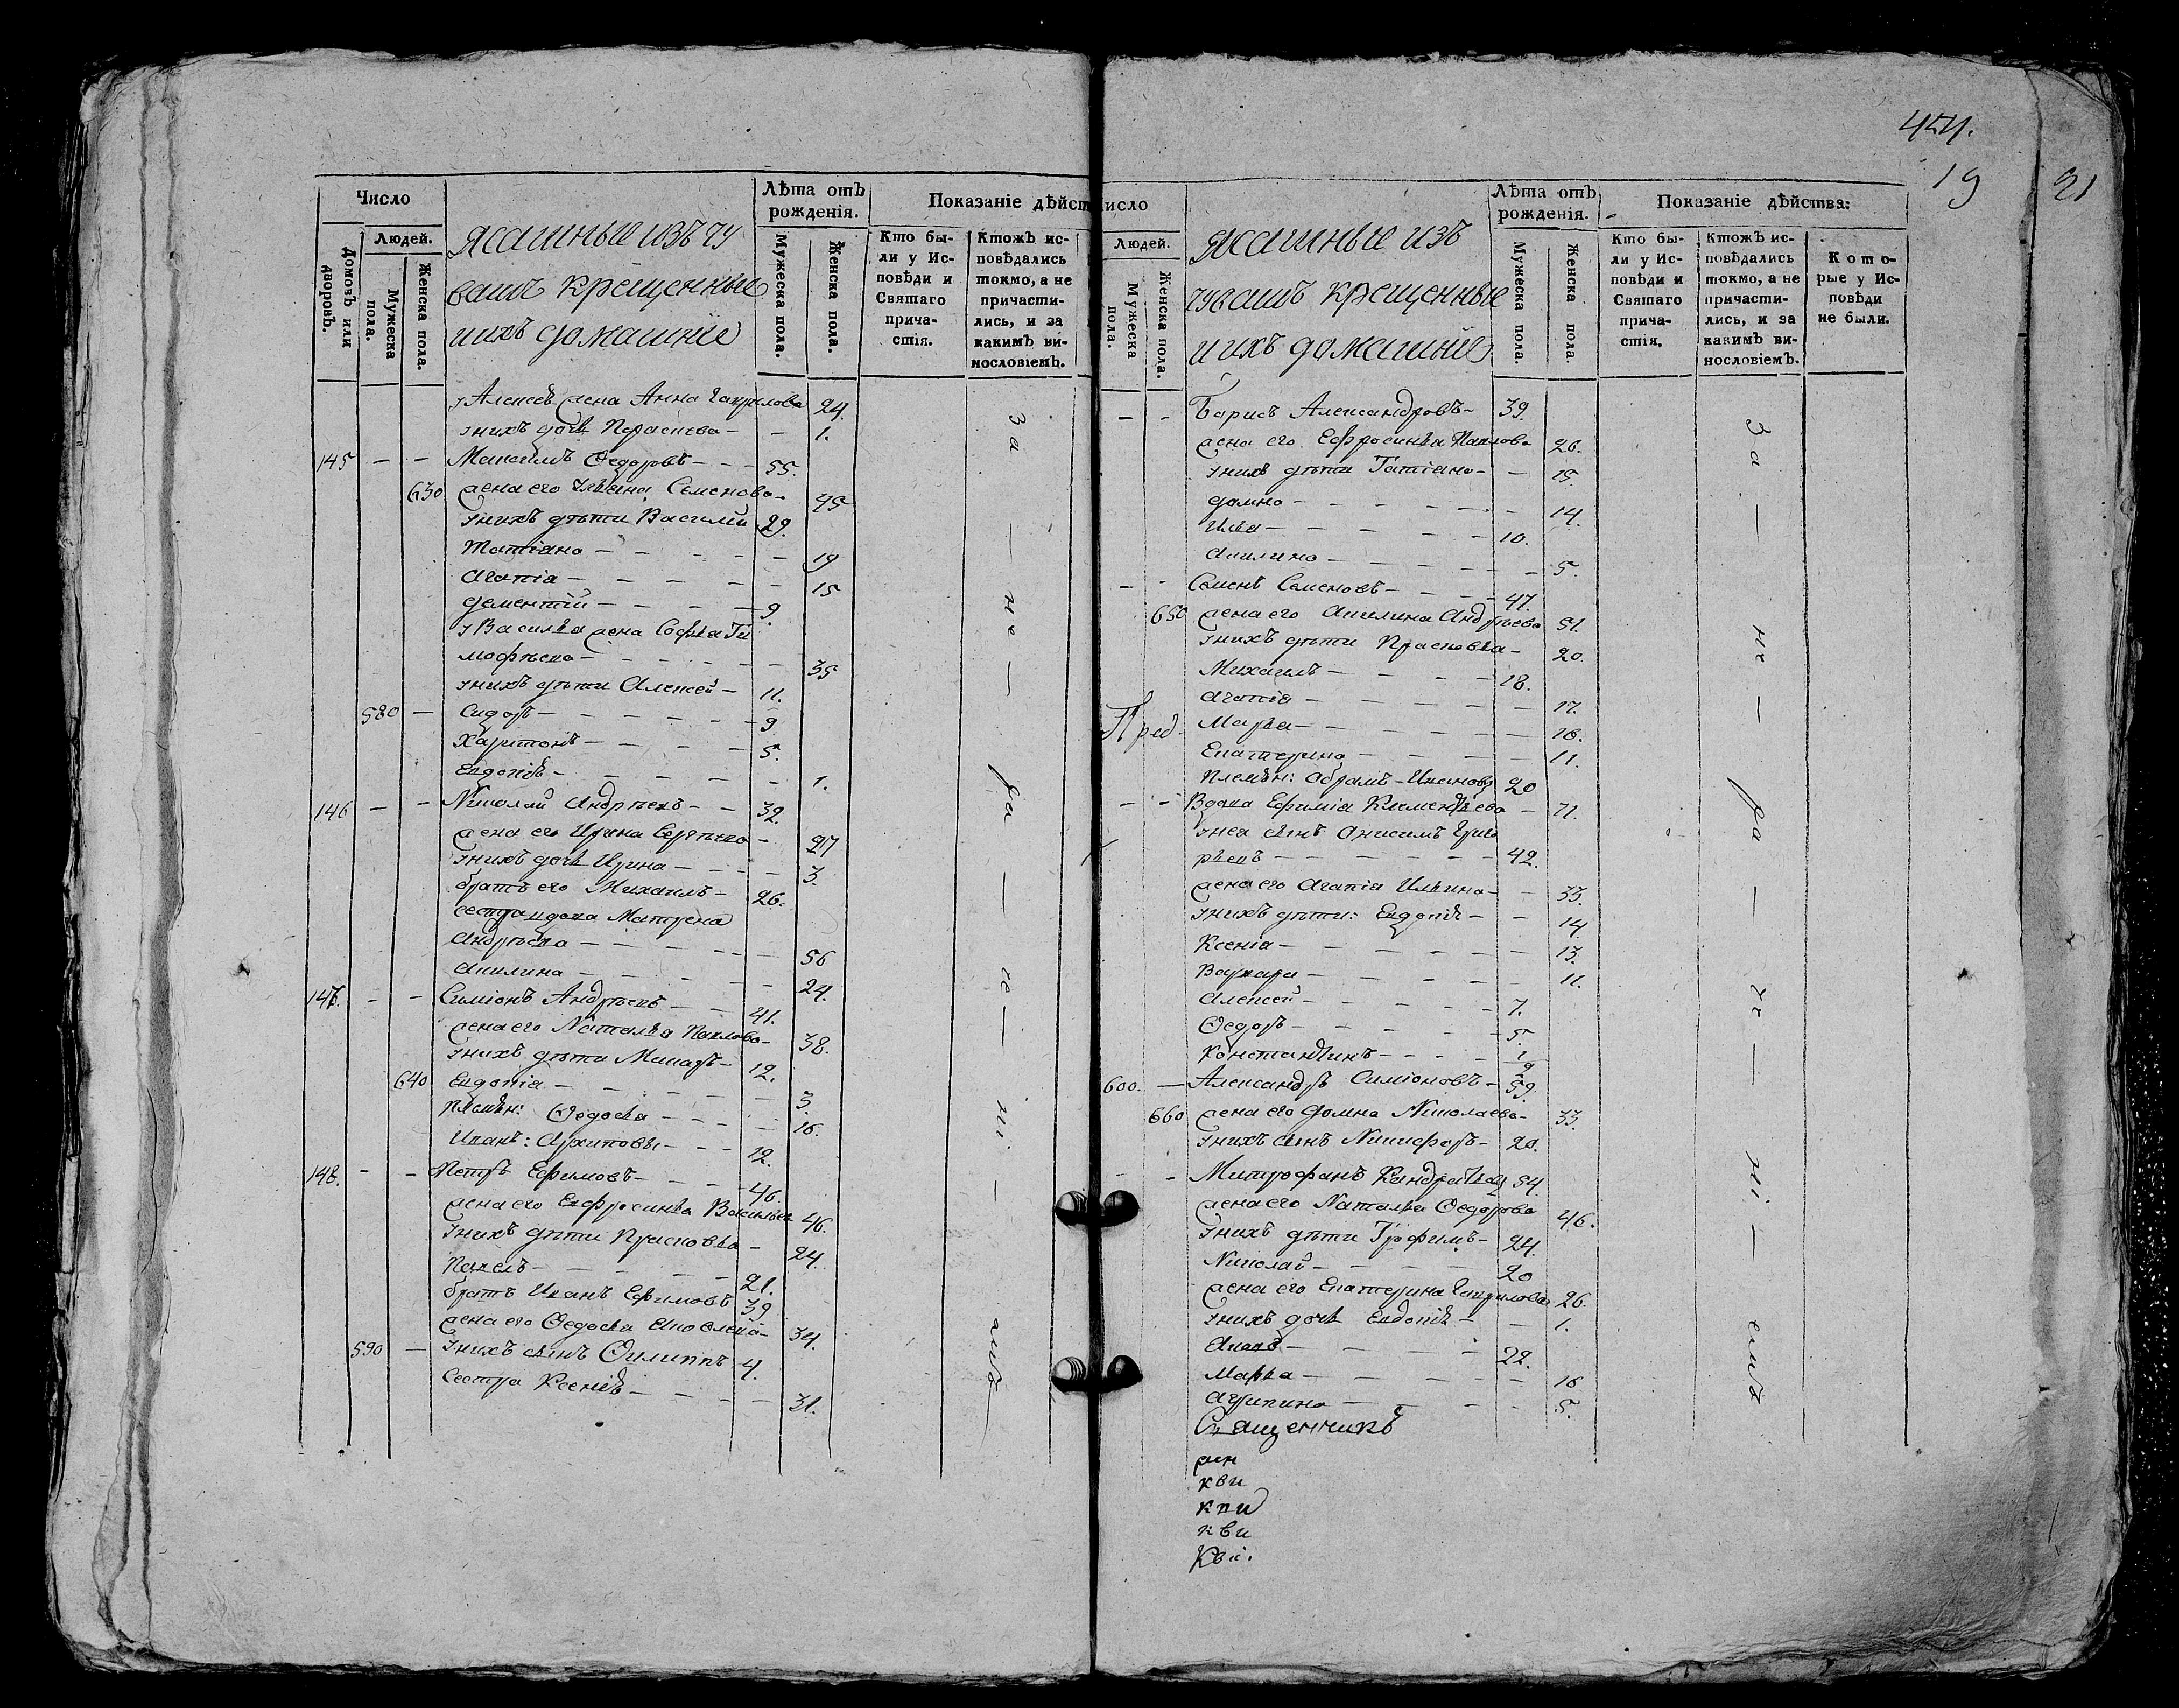 Число
Людей.
Домовъ или дворовъ.
Мужеска пола.
Женска пола.
Ясашные изъ чу
вашъ крещенные
и ихъ домашніе
Лѣта отъ рожденія.
Мужеска пола.
Женска пола.
Показаніе дѣйст
Кто бы-
ли у Ис-
повѣди и
Святаго
прича-
стія.
Ктожъ ис-
повѣдались
токмо, а не
причасти-
лись, и за
какимъ ви-
нословіемъ.
у Алексея жена Анна Гаврилова 24
у нихъ дочь Параскева - - 1.
145 - - Максимъ Ѳедоровъ - - - 55.
630 жена его Семенова - 45
у нихъ дѣти Василий 29.
Татіана - - - - - 19
Агапія - - - - - 15
Дементій - - - - 9
у Василья жена Софья Ти
мофѣева - - - - - - 35
у нихъ дѣти Алексей - 11.
580 - Сидоръ - - - - - 9
Харитонъ - - - - 5.
Евдокія - - - - - 1.
146 - - Николай Андрѣевъ - - 32.
жена его Ирина Сергѣева - 27
у нихъ дочь Ирина - - - - 3.
братъ его Михаилъ - 26.
сестра вдова Матрена
Андрѣева - - - - - 56
Акилина - - - - - 24.
147. - - Симіонъ Андрѣевъ - - 41.
жена его Наталья Павлова - 38.
у нихъ дѣти Макаръ - 12.
640 Евдокія - - - - - 3.
племян: Ѳедосья - - - - 16.
Иванъ: Архиповы - - - 12.
148. - - Петръ Ефимовъ - - - - 46.
жена его Евфросинья Васильева 46.
у нихъ дѣти Прасковья - 24.
Павелъ - - - - - 21.
братъ Иванъ Ефимовъ 39
жена его Ѳедосья - 34.
590 - у нихъ сынъ Филиппъ 4.
сестра Ксенія - - - - - 31.
За - не - ра - че - ні - емъ
454.
19
21
исло
Людей.
Мужеска пола.
Женска пола.
Ясашные изъ
чувашъ крещенные
и ихъ домашніе
Лѣта отъ рожденія.
Мужеска пола.
Женска пола.
Показаніе дѣйства:
Кто бы-
ли у Ис-
повѣди и
Святаго
прича-
стія.
Ктожъ ис-
повѣдались
токмо, а не
причасти-
лись, и за
какимъ ви-
нословіемъ.
Кото-
рые у Ис-
повѣди
не были.
- - Борисъ Александровъ - 39.
жена его Ефросинья Павлова 26.
у нихъ дѣти Татіана - - 15.
Домна - - - - - 14.
Илья - - - - - 10.
Акилина - - - - - 5.
- - Семенъ Семеновъ - - - 47.
650 жена его Акилина Андрѣева 51.
у нихъ дѣти Прасковья - 20.
Михаилъ - - - - 18.
Агапія - - - - - 17.
Пред- Марья - - - - - 16.
Екатерина - - - - - 11.
племян: Абрамъ - Ивановъ 20
- - Вдова Ефимія Климентьева - 71.
у нея сынъ Онисимъ Григо
рьевъ - - - - - - 42.
жена его Агапія Ильина - - 33.
у нихъ дѣти: Евдокія - - 14.
Ксенія - - - - - 13.
Варвара - - - - - 11.
Алексей - - - - 7.
Ѳедоръ - - - - 5.
Константинъ - - - - 2
600. - Александръ Симіоновъ - 59.
660 жена его Домна Николаева - 33.
у нихъ сынъ Никифоръ - 20.
- - Митрофанъ Кандратьевъ 54.
жена его Наталья Ѳедорова 46.
у нихъ дѣти Трофимъ - 24.
Николай - - - - 20
жена его Екатерина Гаврилова 26.
у нихъ дочь Евдокія - - 1.
22.
Марья - - - - - 16
Агрипина - - - - 5.
Священникъ
кви
кпи
кви
Кви.
За - не - ра - че - ні - емъ